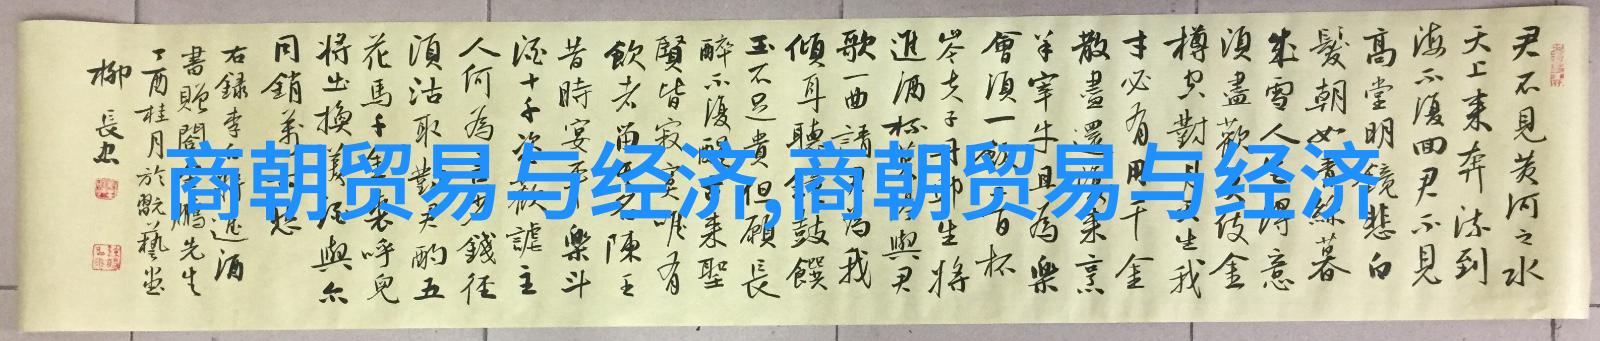 君不見黃河之水
天上來奔流到
海不復回君不見
高堂明鏡悲白
髮朝如青絲暮
成雪人生得意
須盡歡莫使金
樽空對月天生我
才必有用千金
散盡還復來烹
羊宰牛且為樂
會須一飲三百杯
岑夫子丹邱生將
進酒杯莫停與君
歌一曲請君為我
傾耳聽鐘鼓饌
玉不足貴但願長
醉不復醒古來聖
賢皆寂寞唯有
飲者留其名陳王
昔時宴平樂斗
酒十千恣歡謔主
人何為言少錢徑
須沽取對君酌五
花馬千金裘呼兒
將出換美酒與尔
同銷萬古愁
右録李白將進酒
書贈閻鵬先生
丁酉桂月於翫藝堂
柳長忠
商朝贸易与经济,商朝贸易与经济